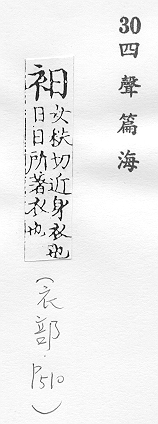 30四聲篇海
衵
女袟切近身衣也
日日所著衣也
(衣部.P510)